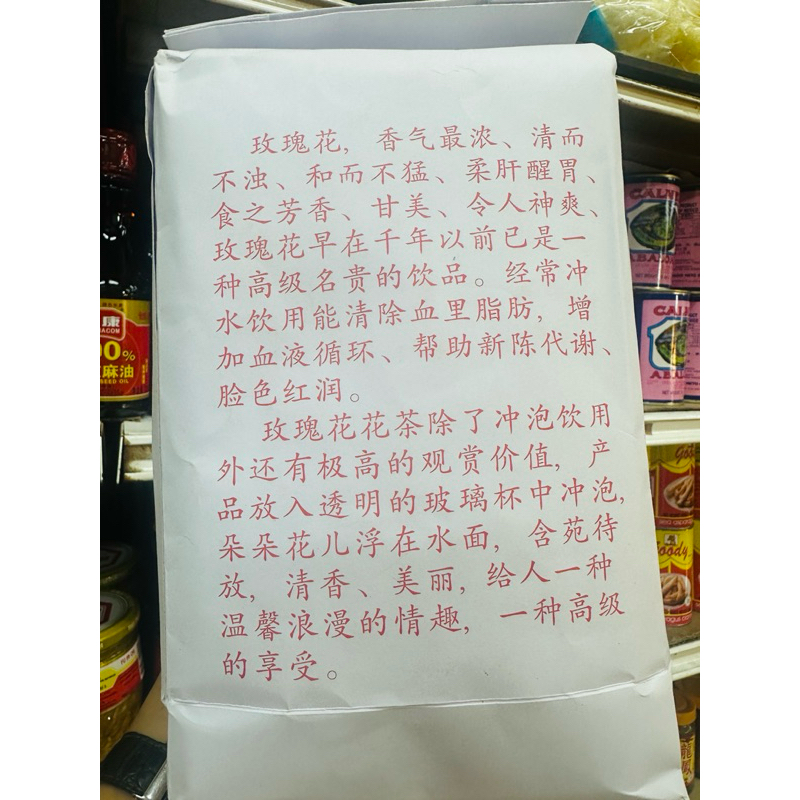 玫瑰花，香气最浓、清而
不浊、和而不猛、柔肝醒胃、
食之芳香、甘美、令人神爽、
玫瑰花早在千年以前已是一
种高级名贵的饮品。经常冲
水饮用能清除血里脂肪，增
加血液循环、帮助新陈代谢、
脸色红润。
玫瑰花花茶除了冲泡饮用
外还有极高的观赏价值，产
品放入透明的玻璃杯中冲泡，
朵朵花儿浮在水面，含苑待
放，清香、美丽，给人一种
温馨浪漫的情趣，一种高级
的享受。
康
00%
麻油
SEED OIL
CALM
ABAL
CAL
ABA
Goody